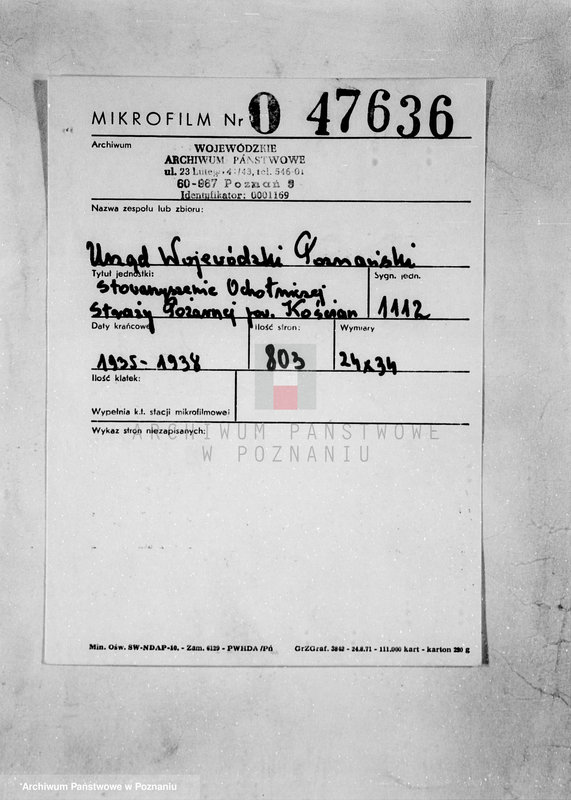 MIKROFILM Nr 0 47636
Archiwum
WOJEWÓDZKIE
ARCHIWUM PAŃSTWOWE
ul. 23 Lutego 41/43, tel. 546-01
60-967 Poznań 9
Identyfikator: 0001169
Nazwa zespołu lub zbioru:
Urząd Wojewódzki Poznański
Tytuł jednostki:
Stowarzyszenie Ochotniczej
Straży Pożarnej pow. Kościan
Sygn. jedn.
1112
Daty krańcowe
1935-1938
Ilość stron:
803
Wymiary
24x34
Ilość klatek:
Wypełnia k.t. stacji mikrofilmowej
Wykaz stron niezapisanych:
ARCHIWUM PAŃSTWOWE
W POZNANIU
Min. Ośw. SW-NDAP-10. - Zam. 6129 - PWHDA/Pń
GrZGraf. 3842 - 24.8.71 - 111.000 kart - karton 280 g
*Archiwum Państwowe w Poznaniu